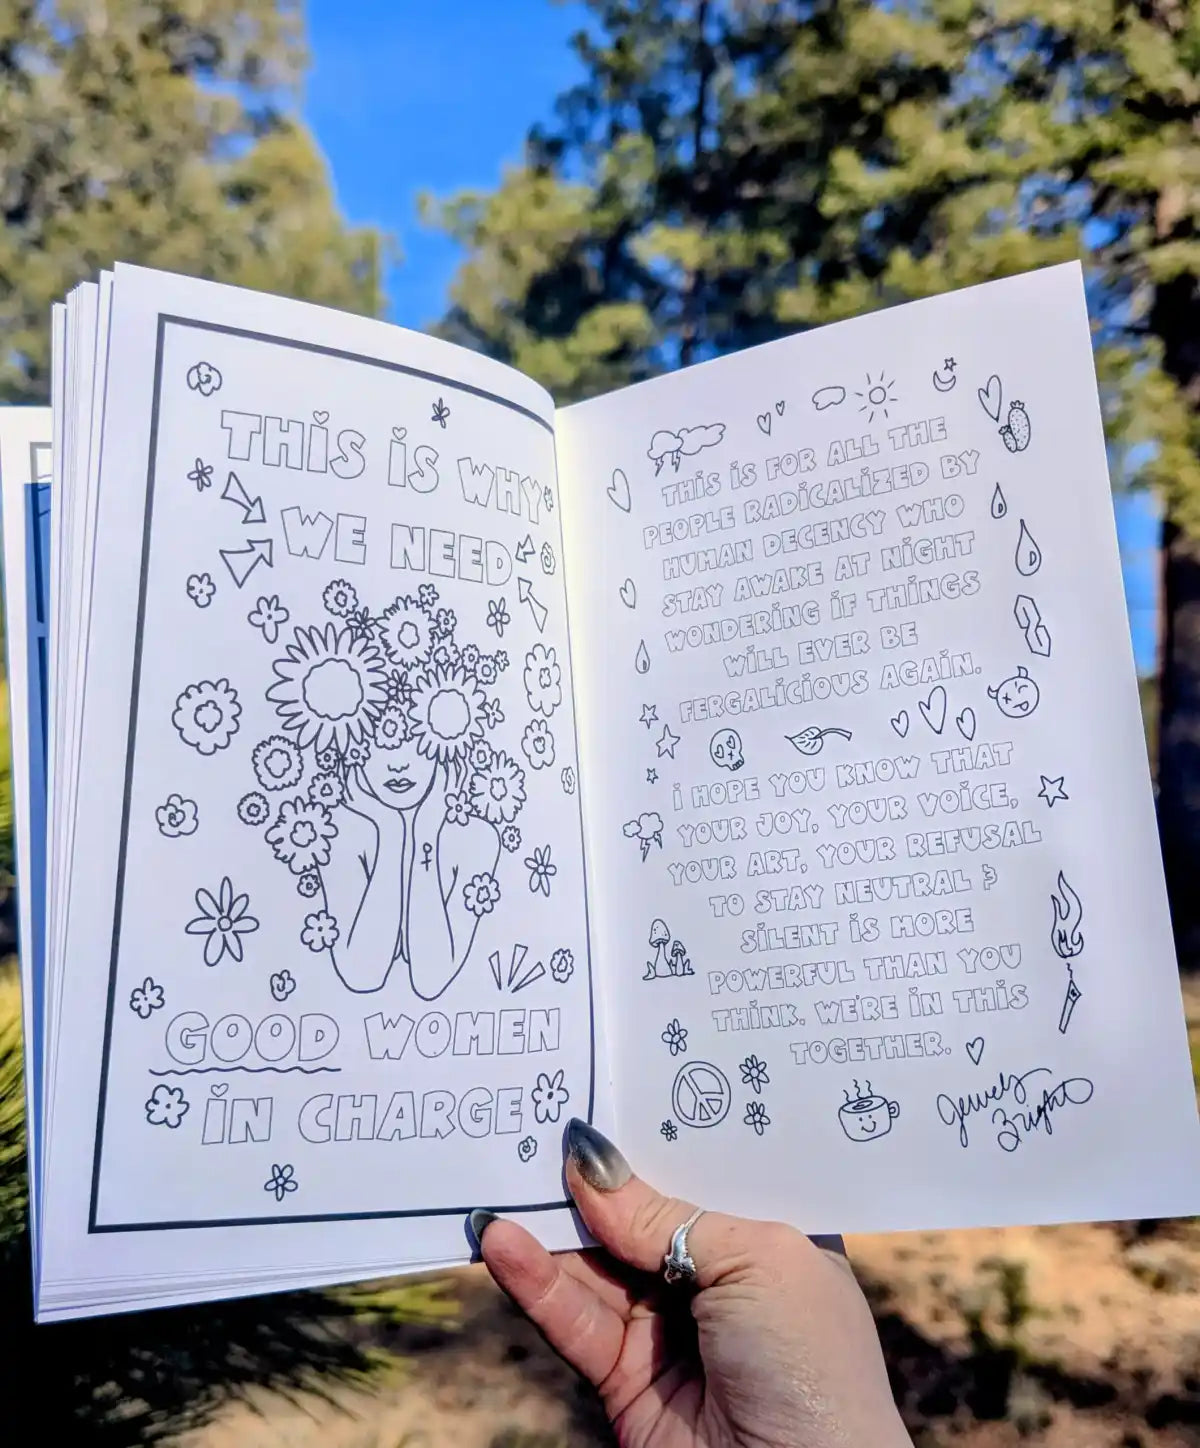 THIS IS WHY
WE NEED
GOOD WOMEN
IN CHARGE
THIS IS FOR ALL THE
PEOPLE RADICALIZED BY
HUMAN DECENCY WHO
STAY AWAKE AT NIGHT
WONDERING IF THINGS
WILL EVER BE
FERGALICIOUS AGAIN.
I HOPE YOU KNOW THAT
YOUR JOY, YOUR VOICE,
YOUR ART, YOUR REFUSAL
TO STAY NEUTRAL &
SILENT IS MORE
POWERFUL THAN YOU
THINK. WE'RE IN THIS
TOGETHER.
Jewels
Bright